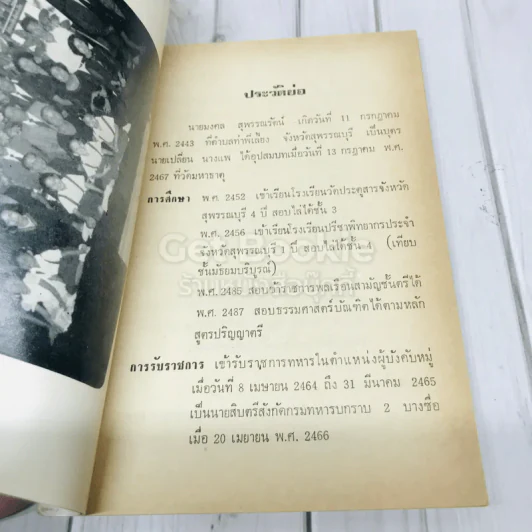 ประวัติย่อ
นายมงคล สุพรรณรัตน์ เกิดวันที่ 11 กรกฎาคม
พ.ศ. 2443 ที่ตำบลท่าพี่เลี้ยง จังหวัดสุพรรณบุรี เป็นบุตร
นายเปลี่ยน นางแพ ได้อุปสมบทเมื่อวันที่ 13 กรกฎาคม พ.ศ.
2467 ที่วัดมหาธาตุ
การศึกษา พ.ศ. 2452 เข้าเรียนโรงเรียนวัดประตูสารจังหวัด
สุพรรณบุรี 4 ปี สอบไล่ได้ชั้น 3
พ.ศ. 2456 เข้าเรียนโรงเรียนปรีชาพิทยากรประจำ
จังหวัดสุพรรณบุรี 1 ปี สอบไล่ได้ชั้น 4 (เทียบ
ชั้นมัธยมบริบูรณ์)
พ.ศ. 2485 สอบข้าราชการพลเรือนสามัญชั้นตรีได้
พ.ศ. 2487 สอบธรรมศาสตร์บัณฑิตได้ตามหลัก
สูตรปริญญาตรี
การรับราชการ เข้ารับราชการทหารในตำแหน่งผู้บังคับหมู่
เมื่อวันที่ 8 เมษายน 2464 ถึง 31 มีนาคม 2465
เป็นนายสิบตรีสังกัดกรมทหารบกราบ 2 บางซื่อ
เมื่อ 20 เมยายน พ.ศ. 2466
Get Bookie